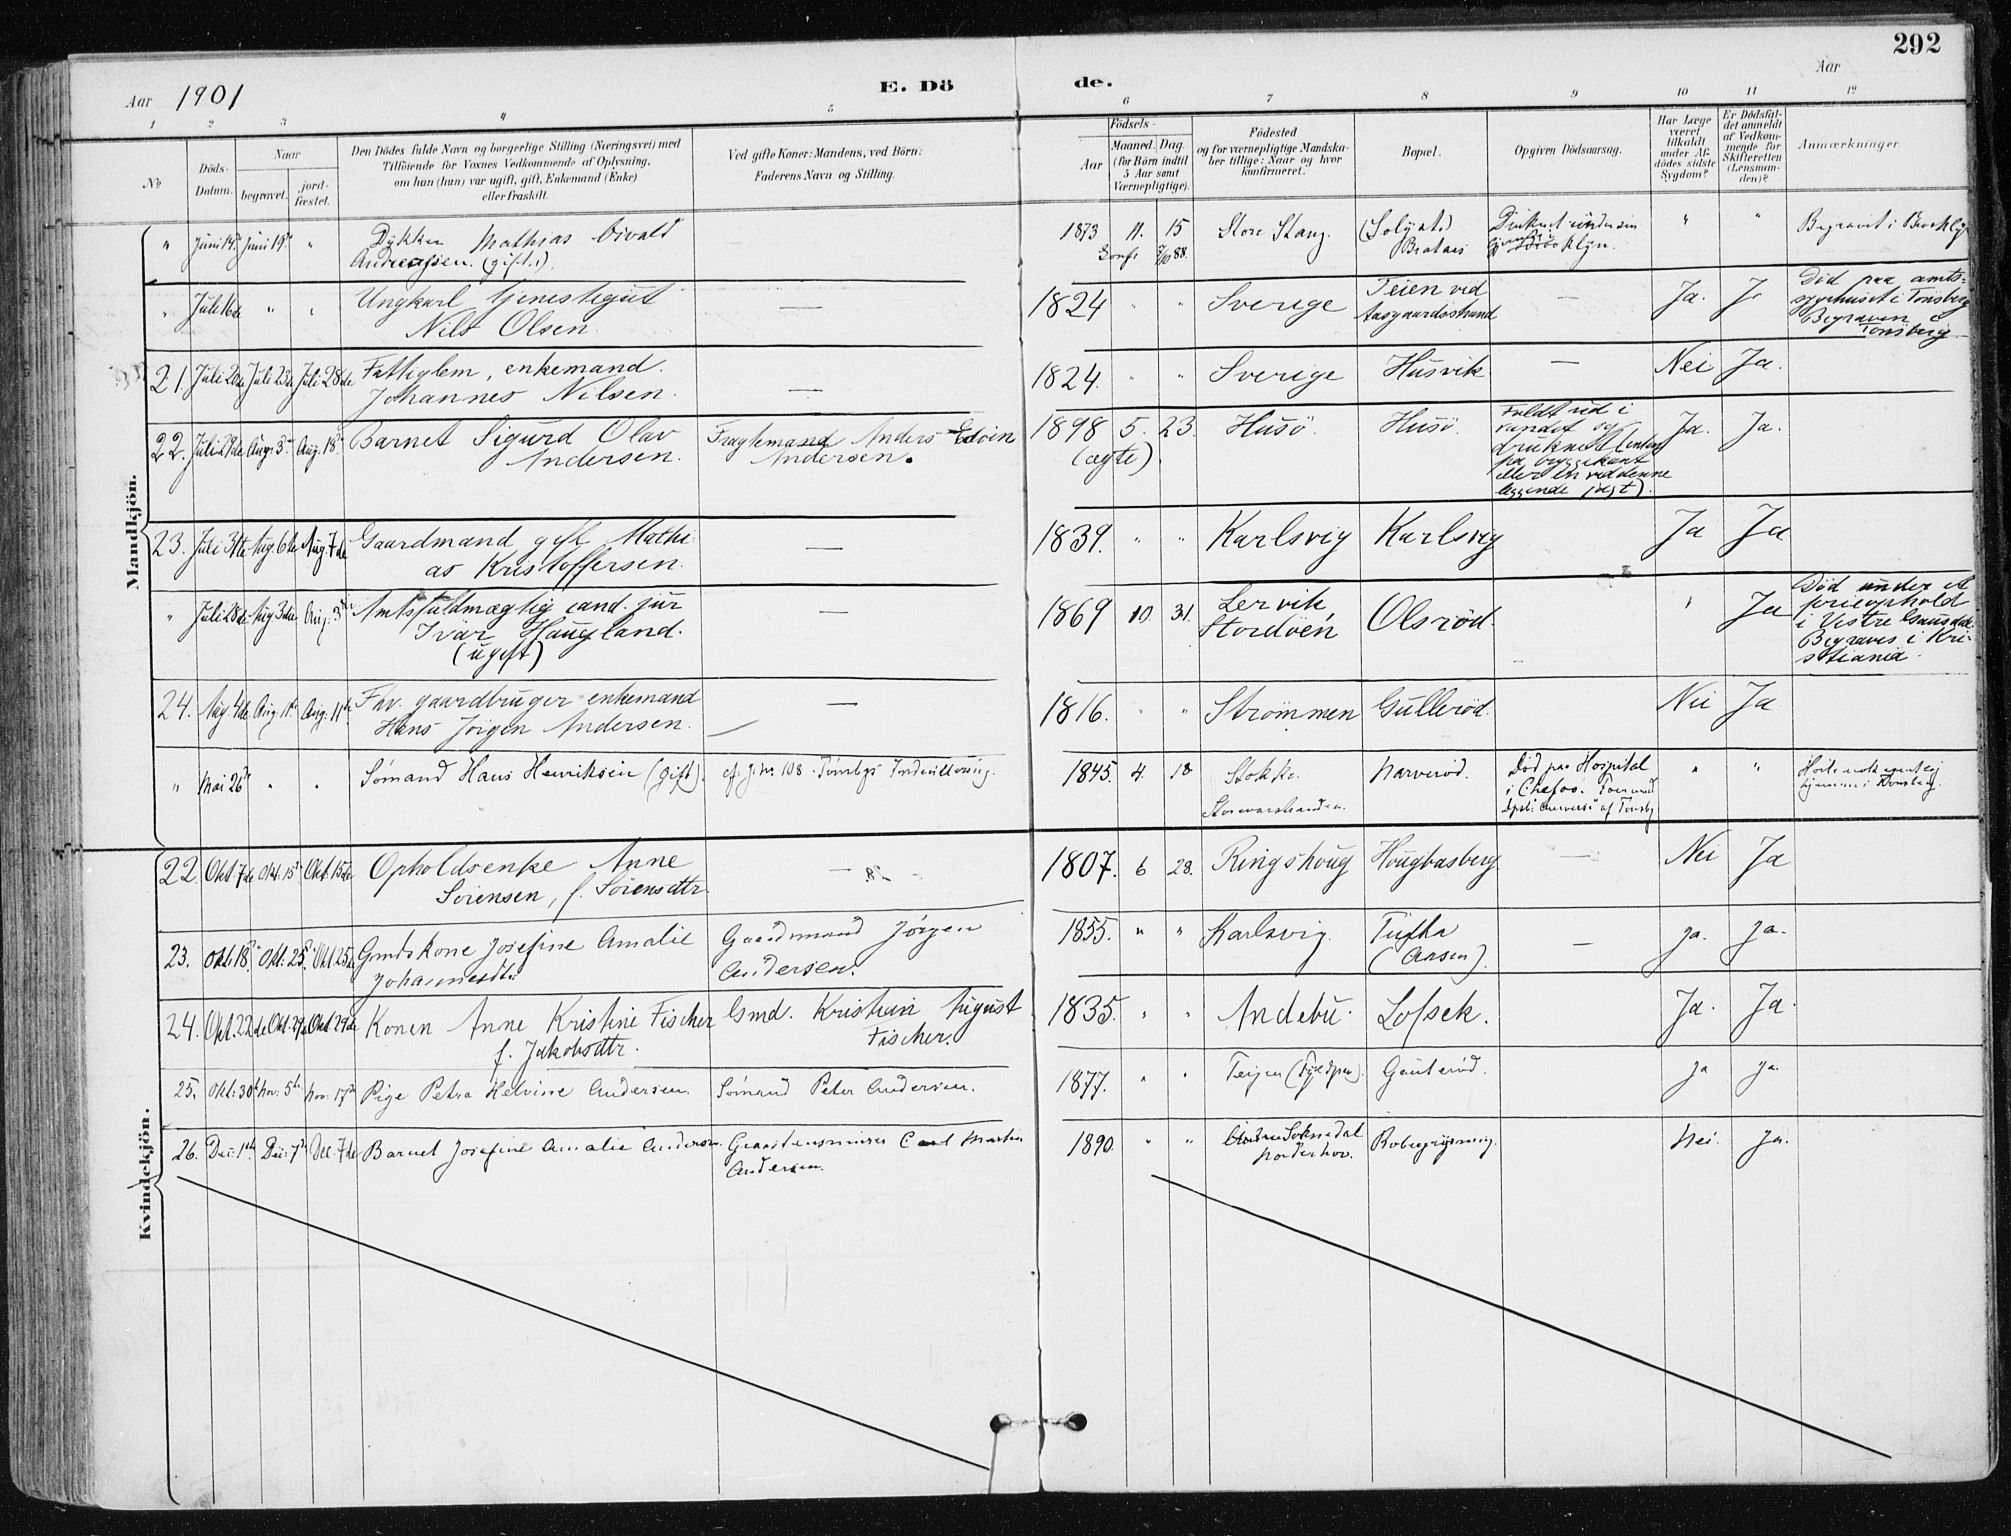 292
Aar 1901
E. Dö
de.
Aar
1 2 3 4 5 6 7 8 9 10 11 12
No
Döds-
Datum.
Naar
begravet.
jord-
fæstet.
Den Dödes fulde Navn og borgerlige Stilling (Næringsvei) med
Tilföiende for Voxnes Vedkommende af Oplysning,
om han (hun) var ugift, gift, Enkemand (Enke)
eller fraskilt.
Ved gifte Koner: Mandens, ved Börn:
Faderens Navn og Stilling.
Födsels-
Aar
Maaned. Dag.
(for Börn indtil
5 Aar samt
Værnepligtige).
Födested
og for værnepligtige Mandska-
ber tillige: Naar og hvor
konfirmeret.
Bopæl.
Opgiven Dödsaarsag.
Har Læge
været
tilkaldt
under Af-
dödes sidste
Sygdom?
Er Dödsfal-
det anmeldt
af Vedkom-
mende for
Skifteretten
(Lensman-
den)?
Anmærkninger.
Mandkjön.
" Juni 14de Juni 19de " Dykker Mathias Sivald
Andreassen. (gift.)
1873 11. 15 Store Stang. (Solgata)
Brataas
" " Begravet i Brooklyn
" Juli 16de " " Ungkarl
Nils Olsen. — 1824 " " Sverige Teien ved
Aasgaardsstrand — Ja. Ja
Död paa amts-
sygehuset i Tönsberg
Begraven i
Tönsberg
21. Juli 20de Juli 23de Juli 28de Fattiglem, enkemand.
Johannes Nilsen. — 1824. " " Sverige Husvik — Nei Ja.
22. Juli 29de Aug. 3de Aug. 18de Barnet Sigurd Olav
Andersen. Fragtemand Anders Edvin
Andersen. 1898 5. 23. Husö. Husö.
(ægte)
Faldt ud i
vandet og
druknet (enten
fra bryggekant
eller en ved denne
liggende jagt).
Ja. Ja.
23. Juli 31te Aug 6te Aug. 7de Gaardmand gift Mathi-
as Kristoffersen. — 1839. " " Karlsvig Karlsvig Ja Ja
" Juli 28de Aug 3die Aug. 3die Amtsfuldmægtig cand. jur
Ivar Haugland.
(ugift) — 1869 10. 31. Lervik,
Stordöen Olsröd. " Ja
Död under et
ferieophold
i Vestre Gausdal.
Begraves i Kri-
stiania.
24. Aug 4de Aug. 11te Aug. 11te Fhv. gaardbruger enkemand
Hans Jörgen Andersen. — 1816. " " Strömmen Gulleröd. Nei Ja
" Mai 26de " " Sömand Hans Henriksen (gift). cf. j. nr. 108. Tönsbgs
1845. 4. 18 Stokke Narveröd. Död paa Hospital
i Chefoo.
af Tönsbg
" "
Kvindekjön.
22. Okt. 7de Okt. 15de Okt. 15de Opholdsenke Anne
Sörensen, f. Sörensdtr. — 1807. 6 28. Ringshoug Hougbasberg — Nei Ja
23. Okt. 18de Okt. 25de Okt 25de Gmdskone Josefine Amalie
Johannesdtr. Gaardmand Jörgen
Andersen. 1855. " " Karlsvig. Tufta
(Aasen). — ja. ja.
24. Okt. 22de Okt. 29de Okt 29de Konen Anne Kristine Fischer
f. Jakobsdtr. Gmd. Kristian August
Fischer. 1835. " " Andebu. Lofsek. Ja. Ja.
25. Okt. 30te Nov. 5te Nov. 17de Pige Petra Helvine Andersen. Sömand Peter Andersen. 1877. " " Teigen Gauteröd. ja ja.
26. Dec. 1ste Dec. 7de Dec. 7de Barnet Josefine Amalie Andersen. Carl Martin
Andersen. 1890. " " Soknedal
Norderhov. Nei. Ja.